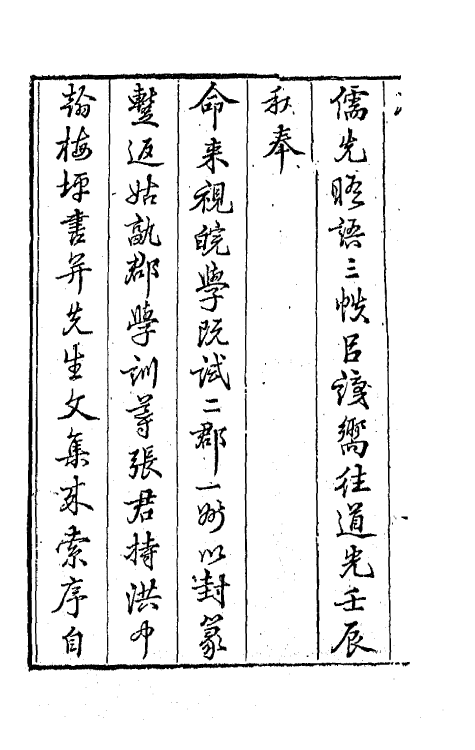 儒先晤語三帙㠯識嚮往道光壬辰
秋奉
命来視皖學既試二郡一州以封篆
蹔返姑孰郡學訓導張君持洪中
翰梅坪書并先生文集来索序自